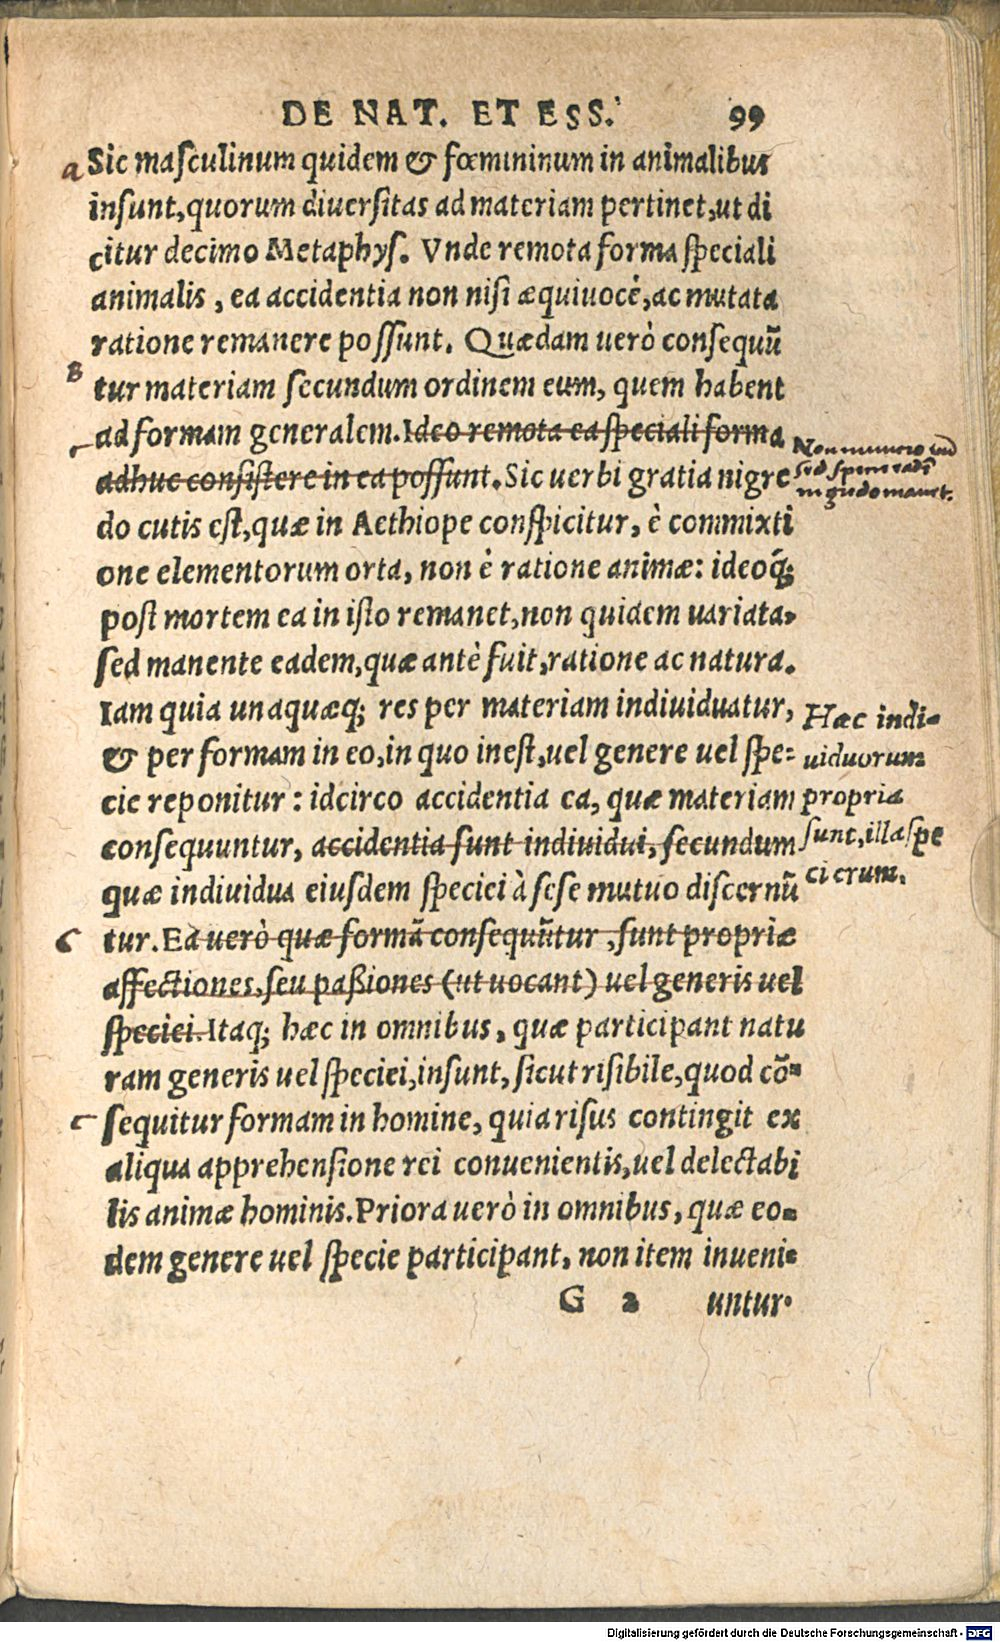 DE NAT. ET ESS. 99
a Sic masculinum quidem & fœmininum in animalibus
insunt, quorum diuersitas ad materiam pertinet, ut di
citur decimo Metaphys. Vnde remota forma speciali
animalis, ea accidentia non nisi æquiuocè, ac mutata
ratione remanere possunt. Quædam uerò consequũ
B
tur materiam secundum ordinem eum, quem habent
ad formam generalem. Ideo remota ea speciali forma
adhuc consistere in ea possunt. Sic uerbi gratia nigre
Non numero
sed
manet.
do cutis est, quæ in Aethiope conspicitur, è commixti
one elementorum orta, non è ratione animæ: ideoq́;
post mortem ea in isto remanet, non quidem uariata,
sed manente eadem, quæ antè fuit, ratione ac natura.
Iam quia unaquæq; res per materiam indiuiduatur,
& per formam in eo, in quo inest, uel genere uel spe-
cie reponitur: idcirco accidentia ea, quæ materiam
consequuntur, accidentia sunt indiuidui, secundum
quæ indiuidua eiusdem speciei à sese mutuo discernũ
Hæc indi-
uiduorum
propria
sunt, illa spe
cierum.
C tur. Ea uerò quæ formã consequũtur, sunt propriæ
affectiones, seu paßiones (ut uocant) uel generis uel
speciei. Itaq; hæc in omnibus, quæ participant natu
ram generis uel speciei, insunt, sicut risibile, quod cõ-
sequitur formam in homine, quia risus contingit ex
aliqua apprehensione rei conuenientis, uel delectabi
lis animæ hominis. Priora uerò in omnibus, quæ eo-
dem genere uel specie participant, non item inueni-
G 2 untur.
Digitalisierung gefördert durch die Deutsche Forschungsgemeinschaft - DFG